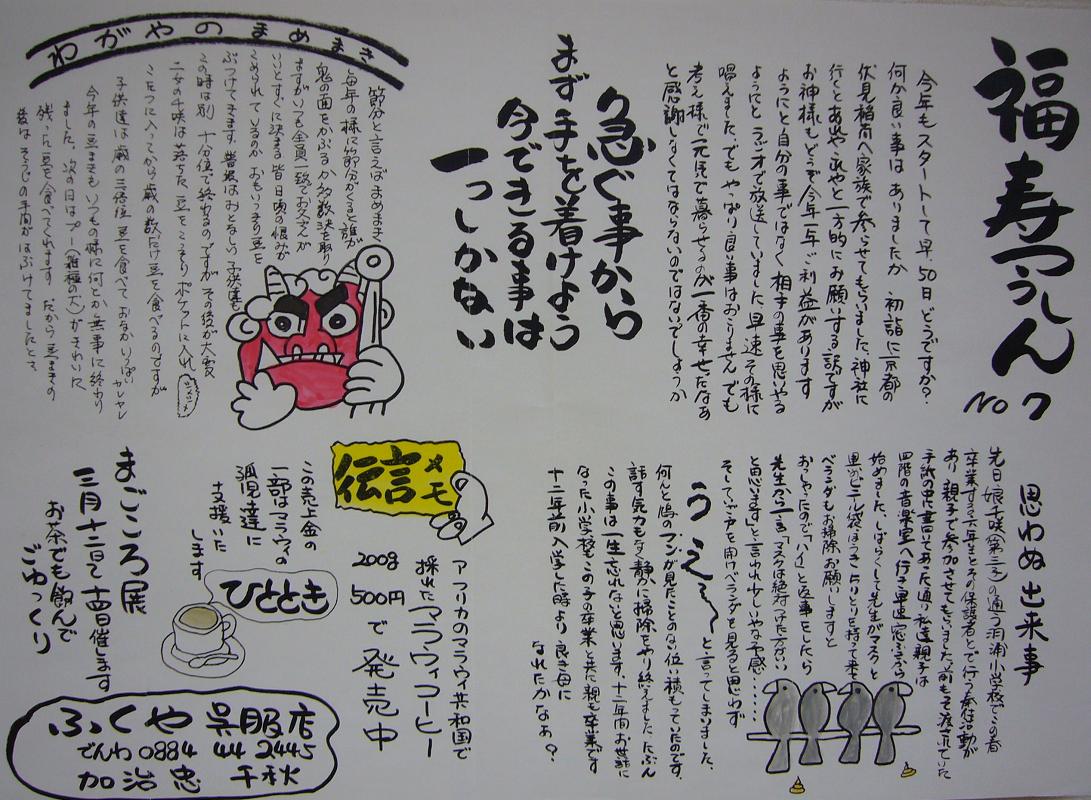 福寿つうしん
No 7
今年もスタートして早、50日どうですか?
何か良い事はありましたか 初詣に京都の
伏見稲荷へ家族で参らせてもらいました。神社に
行くとあれやこれやと一方的にお願いする訳ですが
お神様もどうぞ今年一年ご利益があります
ようにと自分の事ではなく相手の事を思いやる
ようにとラジオで放送していました。早速その様に
唱えました。でもやっぱり良い事はおこりません でも
考え様で一元気で暮らせるのが一番の幸せだなあ
と感謝しなくてはならないのではないでしょうか
急ぐ事から
まず手を着けよう
今できる事は
一つしかない
わがやのまめまき
節分と言えばまめまき
毎年の様に節分がくると誰が
鬼の面をかぶるか多数決を取り
ますがいつも全員一致でお父さんが
いいとすぐに決まる 皆日頃の恨みが
こめられているのか おもいっきり豆を
ぶつけてきます。普段はおとなしい子供達も
この時は別 十分位で終わるのですが その後が大変
二女の千咲は落ちた豆をこっそりポケットに入れ
こたつに入ってから歳の数だけ豆を食べるのですが
子供達は歳の三倍位豆を食べて おなかいっぱい
今年の豆まきもいつもの様に何とか無事に終わり
ました。次の日はプー(雑種の犬)がきれいに
残った豆を食べてくれます だから豆まきの
後はそうじの手間がはぶけてましたとさ
思わぬ出来事
先日娘千咲(第三子)の通う洞浦小学校でこの春
卒業する六年生とその保護者とで行う奉仕活動が
あり親子で参加させてもらいました。前もって渡されていた
手紙の中に書いてあった通り私達親子は
四階の音楽室へ行き早速窓ふきから
始めました。しばらくして先生がマスクと
黒いビニール袋、ほうき、ちりとりを持って来て
ベランダもお掃除お願いしますと
おっしゃたので「ハイ」と返事をしたら
先生から一言「マスクは絶対つけた方がいい
と思います」と言われ少しいやな予感……
そしていざ戸を開けベランダを見ると思わず
うえ〜〜と言ってしまいました。
何んと鳩のフンが見たことのない位積もっていたのです。
話す気力もなく静かに掃除をやり終えました。たぶん
この事は一生忘れないと思います。十二年間お世話に
なった小学校もこの子の卒業と共に親も卒業です
十二年前入学した時より良き母に
なれたかなぁ?
伝言メモ
アフリカのマラウィ共和国で
採れたマラウィコーヒー
200g
500円で発売中
ひととき
この売上金の
一部はマラウィの
孤児達に
支援いた
します
まごころ展
三月十二日〜十四日催ます
お茶でも飲んで
ごゆっくり
ふくや呉服店
でんわ 0884 44 2445
加治忠 千秋